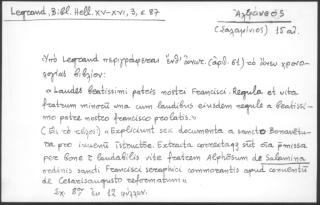 Legrand, Bibl. Hell. XV-XVI, 3, σ 87
Ἀλφόνσος
(Σαλαμίνιος) 15 αἰ.
Ὑπὸ Legrand περιγράφεται ἔνθ' ἀνωτ. (ἀρ. 61) τὸ ἄνευ χρονο-
λογίας βιβλίον:
«Laudes beatissimi patris nostri Francisci. Regula et vita
fratrum minorum una cum laudibus eiusdem regule a beatissi-
mo patre nostro francisco prolatis.»
(Εἰς τὸ τέλος) «Expliciunt sex documenta a sancto Bonavetu-
ra pro iuvenum istructõe. Extracta correctaqz sũt oĩa pmissa
per bone & laudabilis vite fratrem Alphõsum de Salamina
ordinis sancti Francisci seraphici commorantis apud conventũ
de Cesaraugusto reformatum»
Σχ. 8º ἐκ 12 φύλλων.